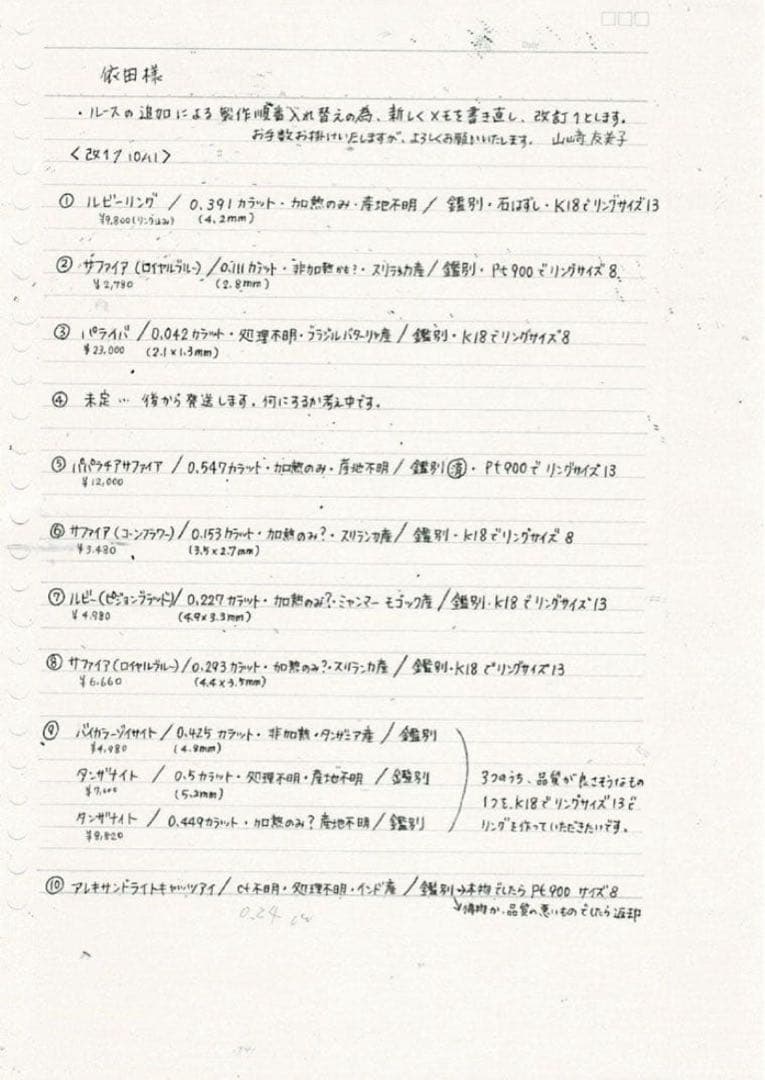 依田様
・ルースの追加による製作順番入れ替えの為、新しくメモを書き直し、改訂1とします。
お手数お掛けいたしますが、よろしくお願いいたします。 山崎友美子
<改1 10/11>
① ルビーリング / 0.391カラット・加熱のみ・産地不明 / 鑑別・石はずし・K18でリングサイズ13
¥9,800(リング込み) (4.2mm)
② サファイア(ロイヤルブルー) / 0.111カラット・非加熱かも?・スリランカ産 / 鑑別・Pt900でリングサイズ8
¥2,780 (2.8mm)
③ パライバ / 0.042カラット・処理不明・ブラジルバターリャ産 / 鑑別・K18でリングサイズ8
¥23,000 (2.1×1.3mm)
④ 未定… 後から発送します。何にするか考え中です。
⑤ パパラチアサファイア / 0.547カラット・加熱のみ・産地不明 / 鑑別済・Pt900でリングサイズ13
¥12,000
⑥ サファイア(コーンフラワー) / 0.153カラット・加熱のみ?・スリランカ産 / 鑑別・K18でリングサイズ8
¥3,480 (3.5×2.7mm)
⑦ ルビー(ピジョンブラッド) / 0.227カラット・加熱のみ?・ミャンマー モゴック産 / 鑑別・K18でリングサイズ13
¥4,980 (4.9×3.3mm)
⑧ サファイア(ロイヤルブルー) / 0.293カラット・加熱のみ?・スリランカ産 / 鑑別・K18でリングサイズ13
¥6,660 (4.4×3.5mm)
⑨ バイカラーゾイサイト / 0.425カラット・非加熱・タンザニア産 / 鑑別
¥4,980 (4.8mm)
タンザナイト / 0.5カラット・処理不明・産地不明 / 鑑別
(5.2mm)
タンザナイト / 0.449カラット・加熱のみ?産地不明 / 鑑別
¥8,820
3つのうち、品質が良さそうなもの
1つを、K18でリングサイズ13で
リングを作っていただきたいです。
⑩ アレキサンドライトキャッツアイ / ct不明・処理不明・インド産 / 鑑別→本物でしたらPt900 サイズ8
↘偽物か、品質の悪いものでしたら返却
0.24 ct